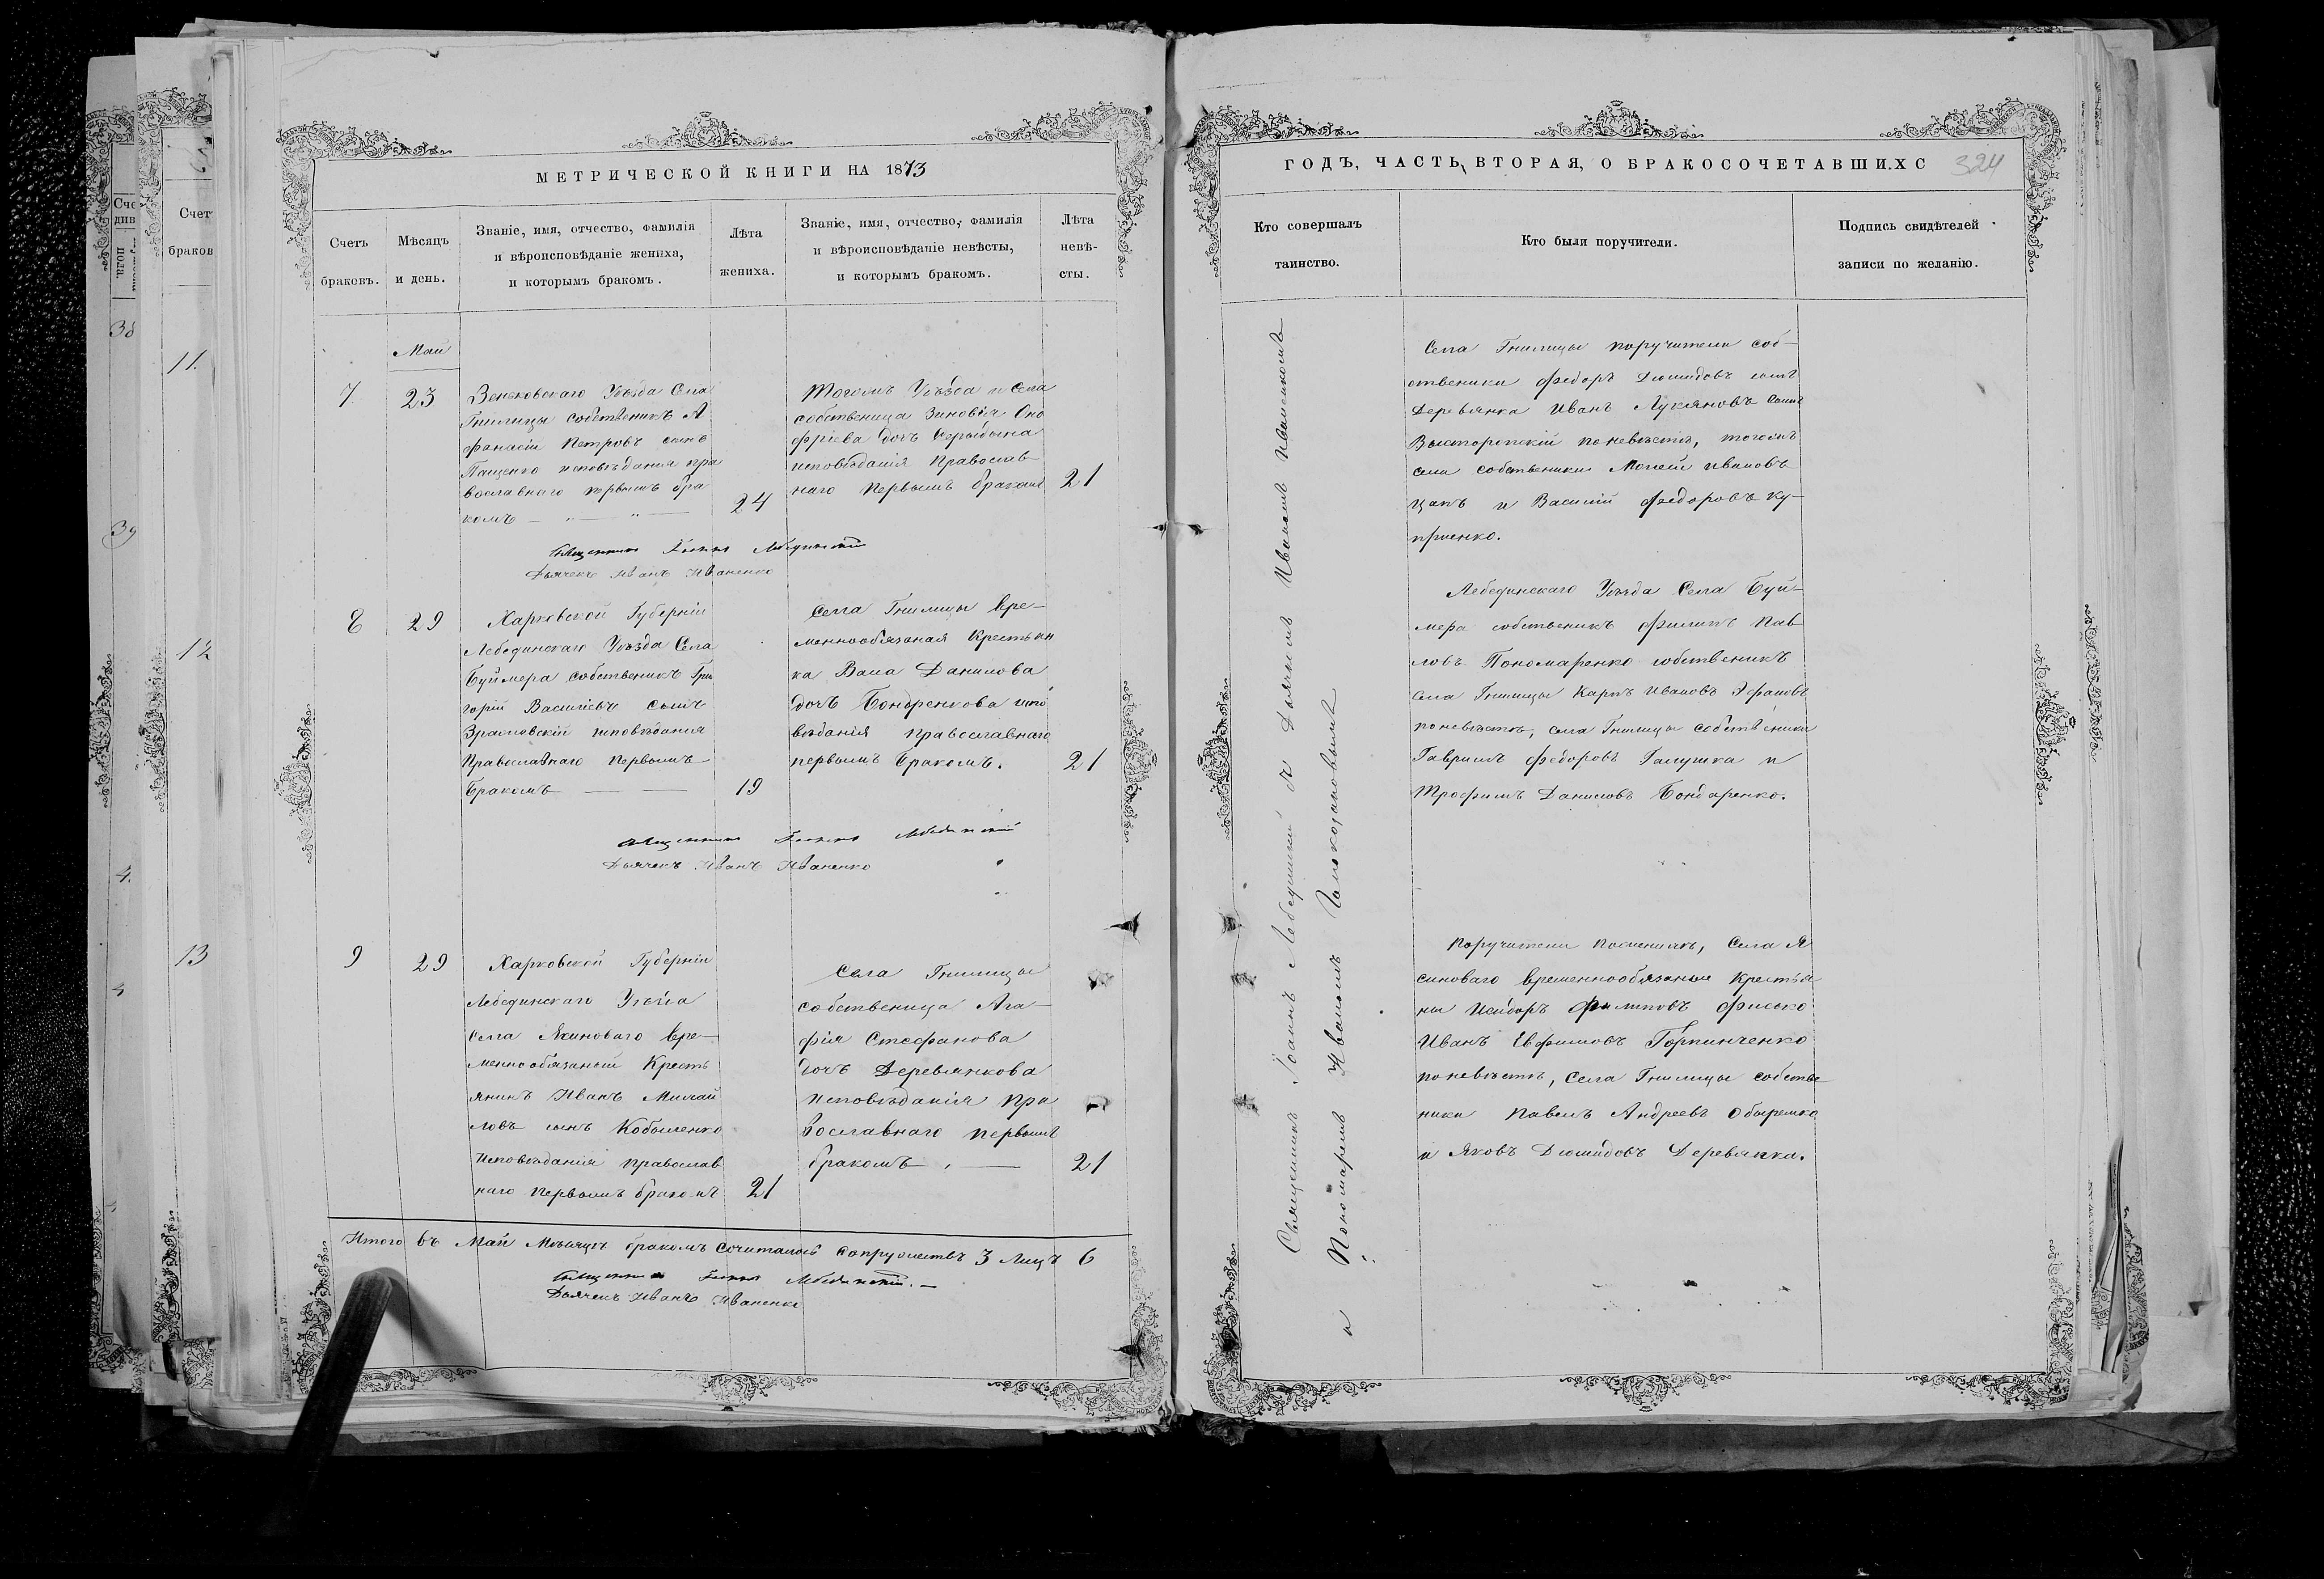 МЕТРИЧЕСКОЙ КНИГИ НА 1873
Счетъ браковъ.
Мѣсяцъ и день.
Званіе, имя, отчество, фамилія
и вѣроисповѣданіе жениха,
и которымъ бракомъ.
Лѣта жениха.
Званіе, имя, отчество, фамилія
и вѣроисповѣданіе невѣсты,
и которымъ бракомъ.
Лѣта невѣ-
сты.
Май
7
23
Зеньковскаго Уѣзда Села
Гнилицы собственикъ А
фанасій Петровъ сынъ
Пащенко исповѣданія пра
вославнаго первымъ бра
комъ
24
Тогомъ Уѣзда и Села
собственица Зиновія Оно
фріева дочь
исповѣданія Православ
наго Первымъ бракомъ
21
Священникъ Іоаннъ Лебединскій
Дьячекъ Иванъ Иваненко
8
29
Харковской Губерніи
Лебединскаго Уѣзда Села
Буймера собственикъ Гри
горій Василіевъ сынъ
исповѣданія
Православнаго Первымъ
Бракомъ
19
Села Гнилицы вре-
меннообязаная Крестьян
ка Данилова
дочь Бондренкова испо
вѣданія православнаго
первымъ Бракомъ.
21
Священникъ Іоаннъ Лебединскій
Дьячекъ Иванъ Иваненко
9
29
Харковской Губерніи
Лебединскаго Уѣзда
Села Ясиноваго вре-
меннообязаный Кресть
янинъ Иванъ Михай
ловъ сынъ Кобыленко
Исповѣданія православ
наго Первымъ бракомъ
21
Села Гнилицы
собственица Ага-
фія Стефанова
дочь Деревянкова
Исповѣданія Пра
вославнаго первымъ
бракомъ
21
Итого въ Маи Мѣсяцѣ бракомъ сочиталось супружествъ 3 Лицъ 6
Священникъ Іоаннъ Лебединскій.
Дьячекъ Иванъ Иваненко
ГОДЪ, ЧАСТЬ ВТОРАЯ, О БРАКОСОЧЕТАВШИХС
324
Кто совершалъ
таинство.
Кто были поручители.
Подпись свидѣтелей
записи по желанію.
Священникъ Іоаннъ Лебединскій съ Дьячкомъ Иваномъ Иваненкомъ
и Пономаремъ Иваномъ
Села Гнилицы поручители соб-
ственики Федоръ Діомидовъ сынъ
Деревянка Иванъ Лукяновъ сынъ
по невѣстѣ, тогомъ
села собственики Мойсей Ивановъ
Цапъ и Василій Федоровъ Ку-
приенко.
Лебединскаго Уѣзда Села Буй-
мера собственикъ Филипъ Пав-
ловъ Пономаренко собственикъ
села Гнилицы Карпъ Ивановъ
по невѣстѣ, села Гнилицы собственики
Гавриилъ Федоровъ Галушка и
Трофимъ Даниловъ Бондаренко.
Поручители по женихѣ, Села Я
синоваго временнообязаные Крестья
ны Исидоръ Филиповъ Фисько
Иванъ Евфимовъ Горпинченко
по невѣстѣ, Села Гнилицы собстве
ники Павелъ Андреевъ
и Яковъ Діомидовъ Деревянка.
Счет
браков
11.
12
13
38
39